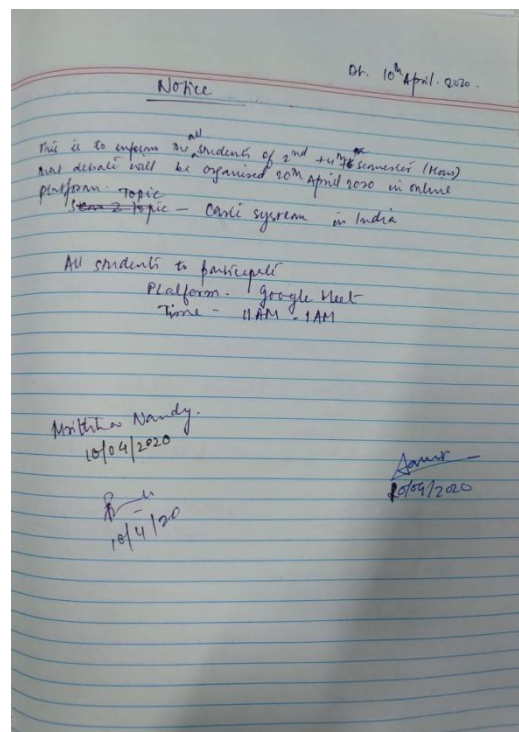 Dt. 10th April. 2020.
Notice
This is to inform the all students of 2nd + 4th semester (Hons)
that debate will be organised 20th April 2020 in online
platform. Topic
Topic - Caste system in India
All students to participate
Platform - Google Meet
Time - 11AM - 1AM
Nandy.
10/04/2020
10/4/20
10/04/2020